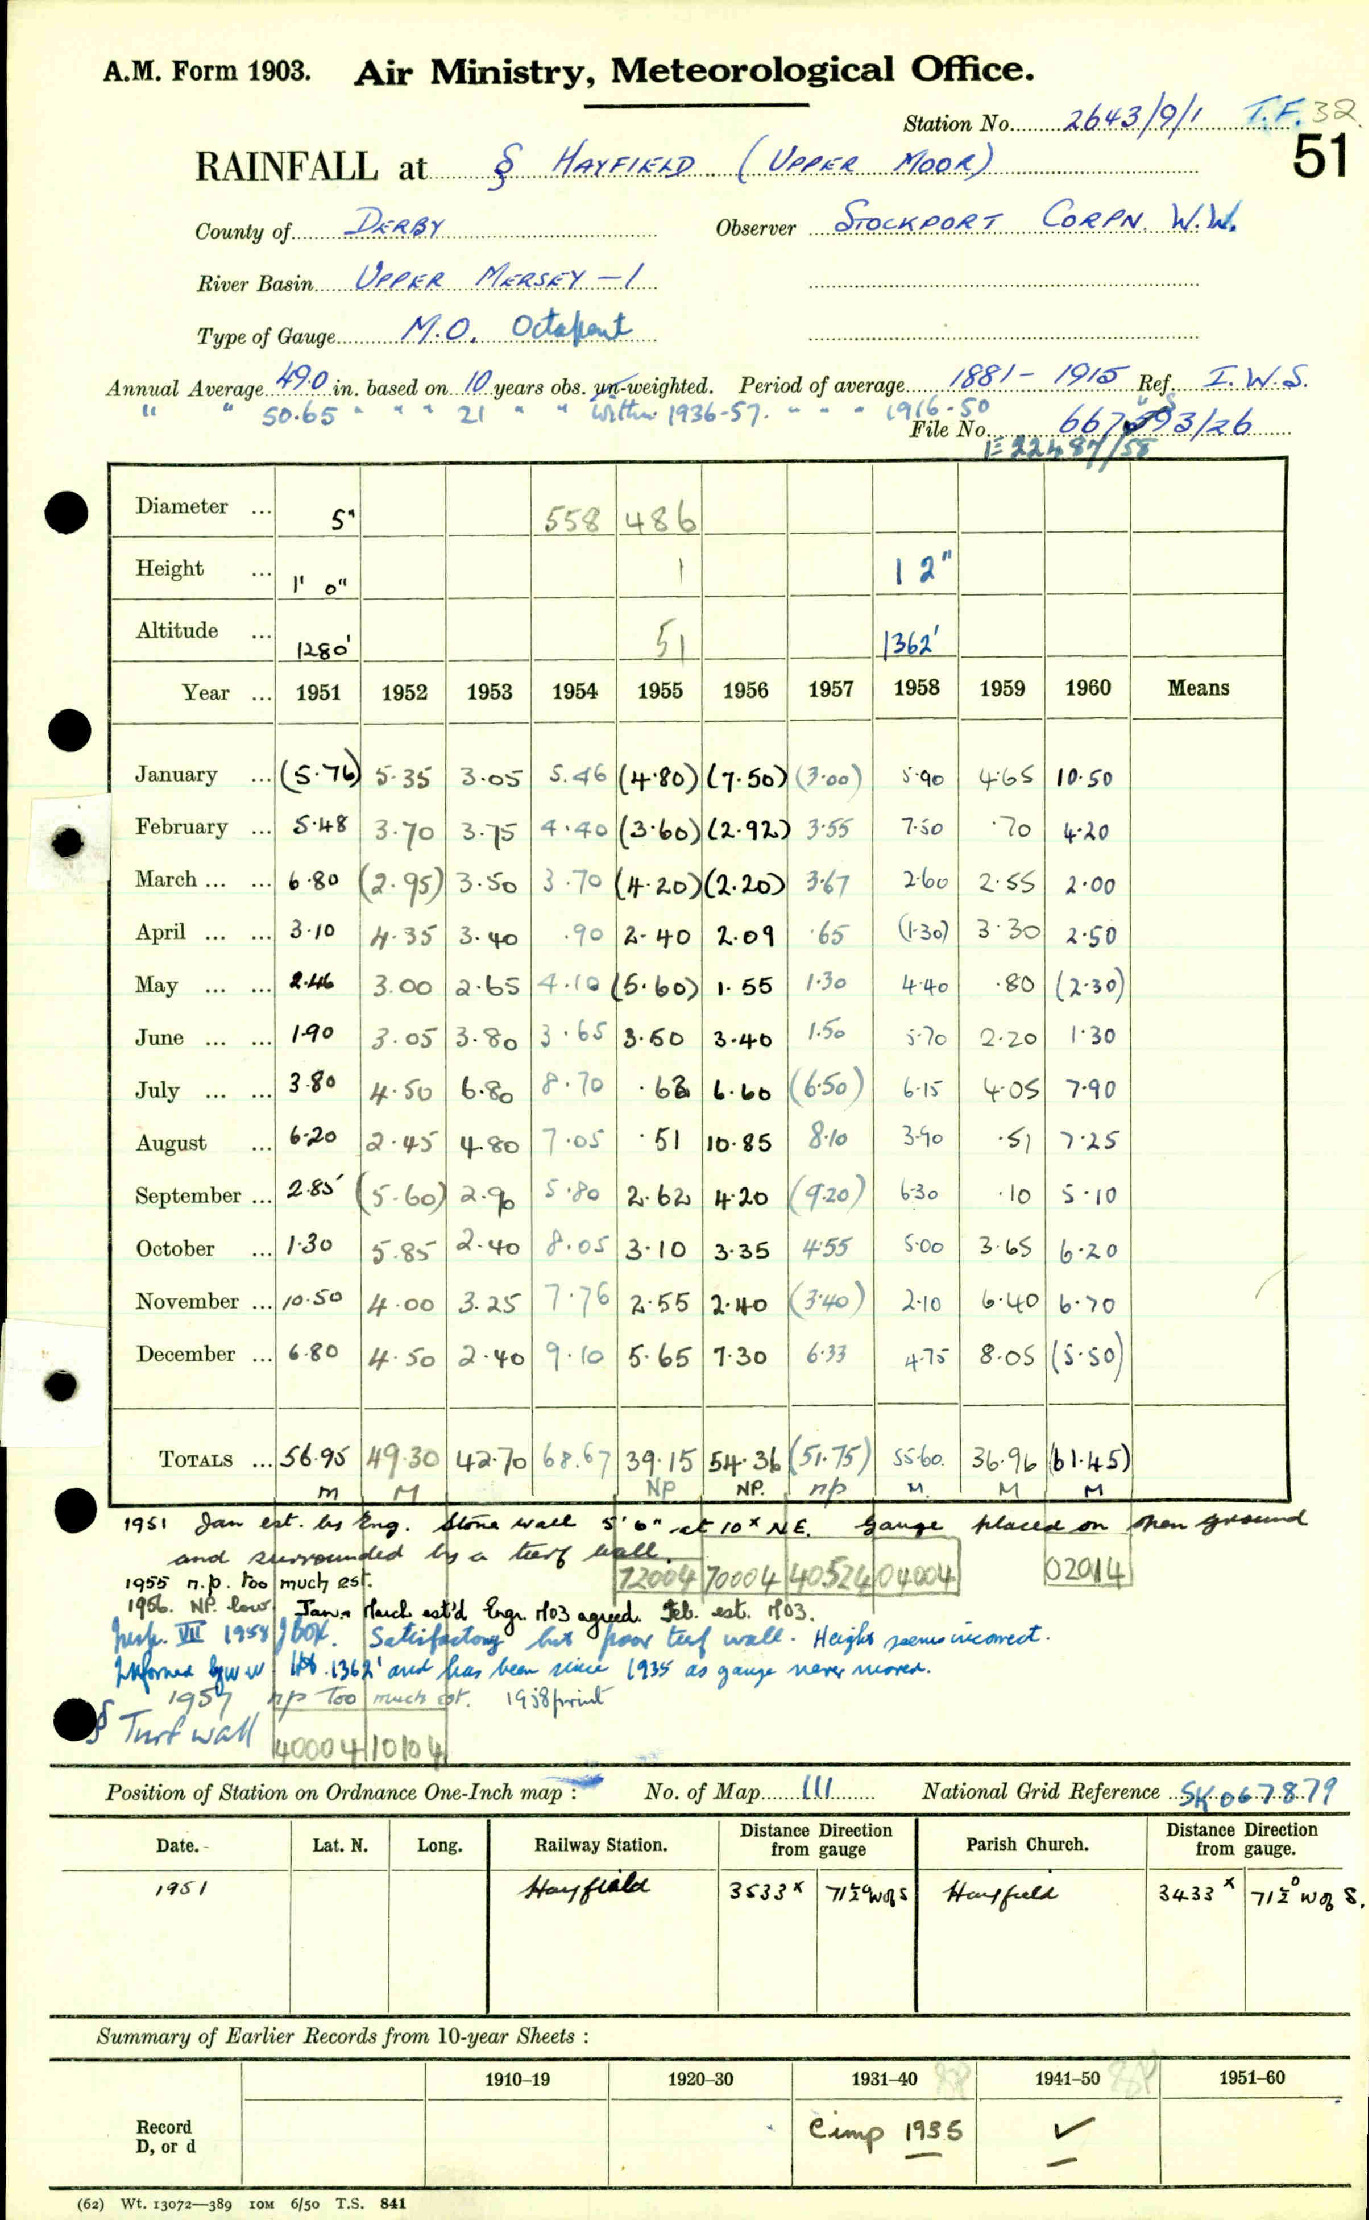 A.M. Form 1903. Air Ministry, Meteorological Office.
Station No. 2643/9/1 T.F. 32
51
RAINFALL at § HAYFIELD (UPPER MOOR)
County of DERBY Observer STOCKPORT CORPN. W.W.
River Basin UPPER MERSEY - 1
Type of Gauge M.O. Octapent
Annual Average 49.0 in. based on 10 years obs. un-weighted. Period of average 1881 - 1915 Ref. I.W.S.
" " 50.65 " " " 21 " " within 1936-57. " " " 1916-50 " "
File No. 93/26
E 22487/58
Diameter ... 5" 558 486
Height ... 1' 0" 1 1 2"
Altitude ... 1280' 51 1362'
Year ... 1951 1952 1953 1954 1955 1956 1957 1958 1959 1960 Means
January ... (5.76) 5.35 3.05 5.46 (4.80) (7.50) (3.00) 5.90 4.65 10.50
February ... 5.48 3.70 3.75 4.40 (3.60) (2.92) 3.55 7.50 .70 4.20
March ... ... 6.80 (2.95) 3.50 3.70 (4.20) (2.20) 3.67 2.60 2.55 2.00
April ... ... 3.10 4.35 3.40 .90 2.40 2.09 .65 (1.30) 3.30 2.50
May ... ... 2.46 3.00 2.65 4.10 (5.60) 1.55 1.30 4.40 .80 (2.30)
June ... ... 1.90 3.05 3.80 3.65 3.50 3.40 1.50 5.70 2.20 1.30
July ... ... 3.80 4.50 6.80 8.70 .62 6.60 (6.50) 6.15 4.05 7.90
August ... 6.20 2.45 4.80 7.05 .51 10.85 8.10 3.90 .51 7.25
September ... 2.85 (5.60) 2.90 5.80 2.62 4.20 (9.20) 6.30 .10 5.10
October ... 1.30 5.85 2.40 8.05 3.10 3.35 4.55 5.00 3.65 6.20
November ... 10.50 4.00 3.25 7.76 2.55 2.40 (3.40) 2.10 6.40 6.70
December ... 6.80 4.50 2.40 9.10 5.65 7.30 6.33 4.75 8.05 (5.50)
TOTALS ... 56.95 49.30 42.70 68.67 39.15 54.36 (51.75) 55.60 36.96 (61.45)
m M NP NP. np M. M M
1951 Jan est. by Eng. Stone wall 5' 6" at 10x NE. Gauge placed on open ground
and surrounded by a turf wall.
72004 70004 40524 04004 02014
1955 n.p. too much est.
1956. NP. low Jan. March est'd Engr. M03 agreed. Feb. est. M03.
Insp. VII 1958 JBOX. Satisfactory but poor turf wall. Height seems incorrect.
Informed by W W Ht. 1362' and has been since 1935 as gauge never moved.
1957 np too much est. 1958 print
§ Turf wall
40004 10104
Position of Station on Ordnance One-Inch map : No. of Map 111 National Grid Reference SK 067879
Date. Lat. N. Long. Railway Station. Distance from Direction gauge Parish Church. Distance from Direction gauge.
1951 Hayfield 3533x 71½° W of S Hayfield 3433x 71½° W of S.
Summary of Earlier Records from 10-year Sheets :
1910–19 1920–30 1931–40 1941–50 1951–60
Record
D, or d
Cimp 1935 ✓
(62) Wt. 13072—389 10M 6/50 T.S. 841